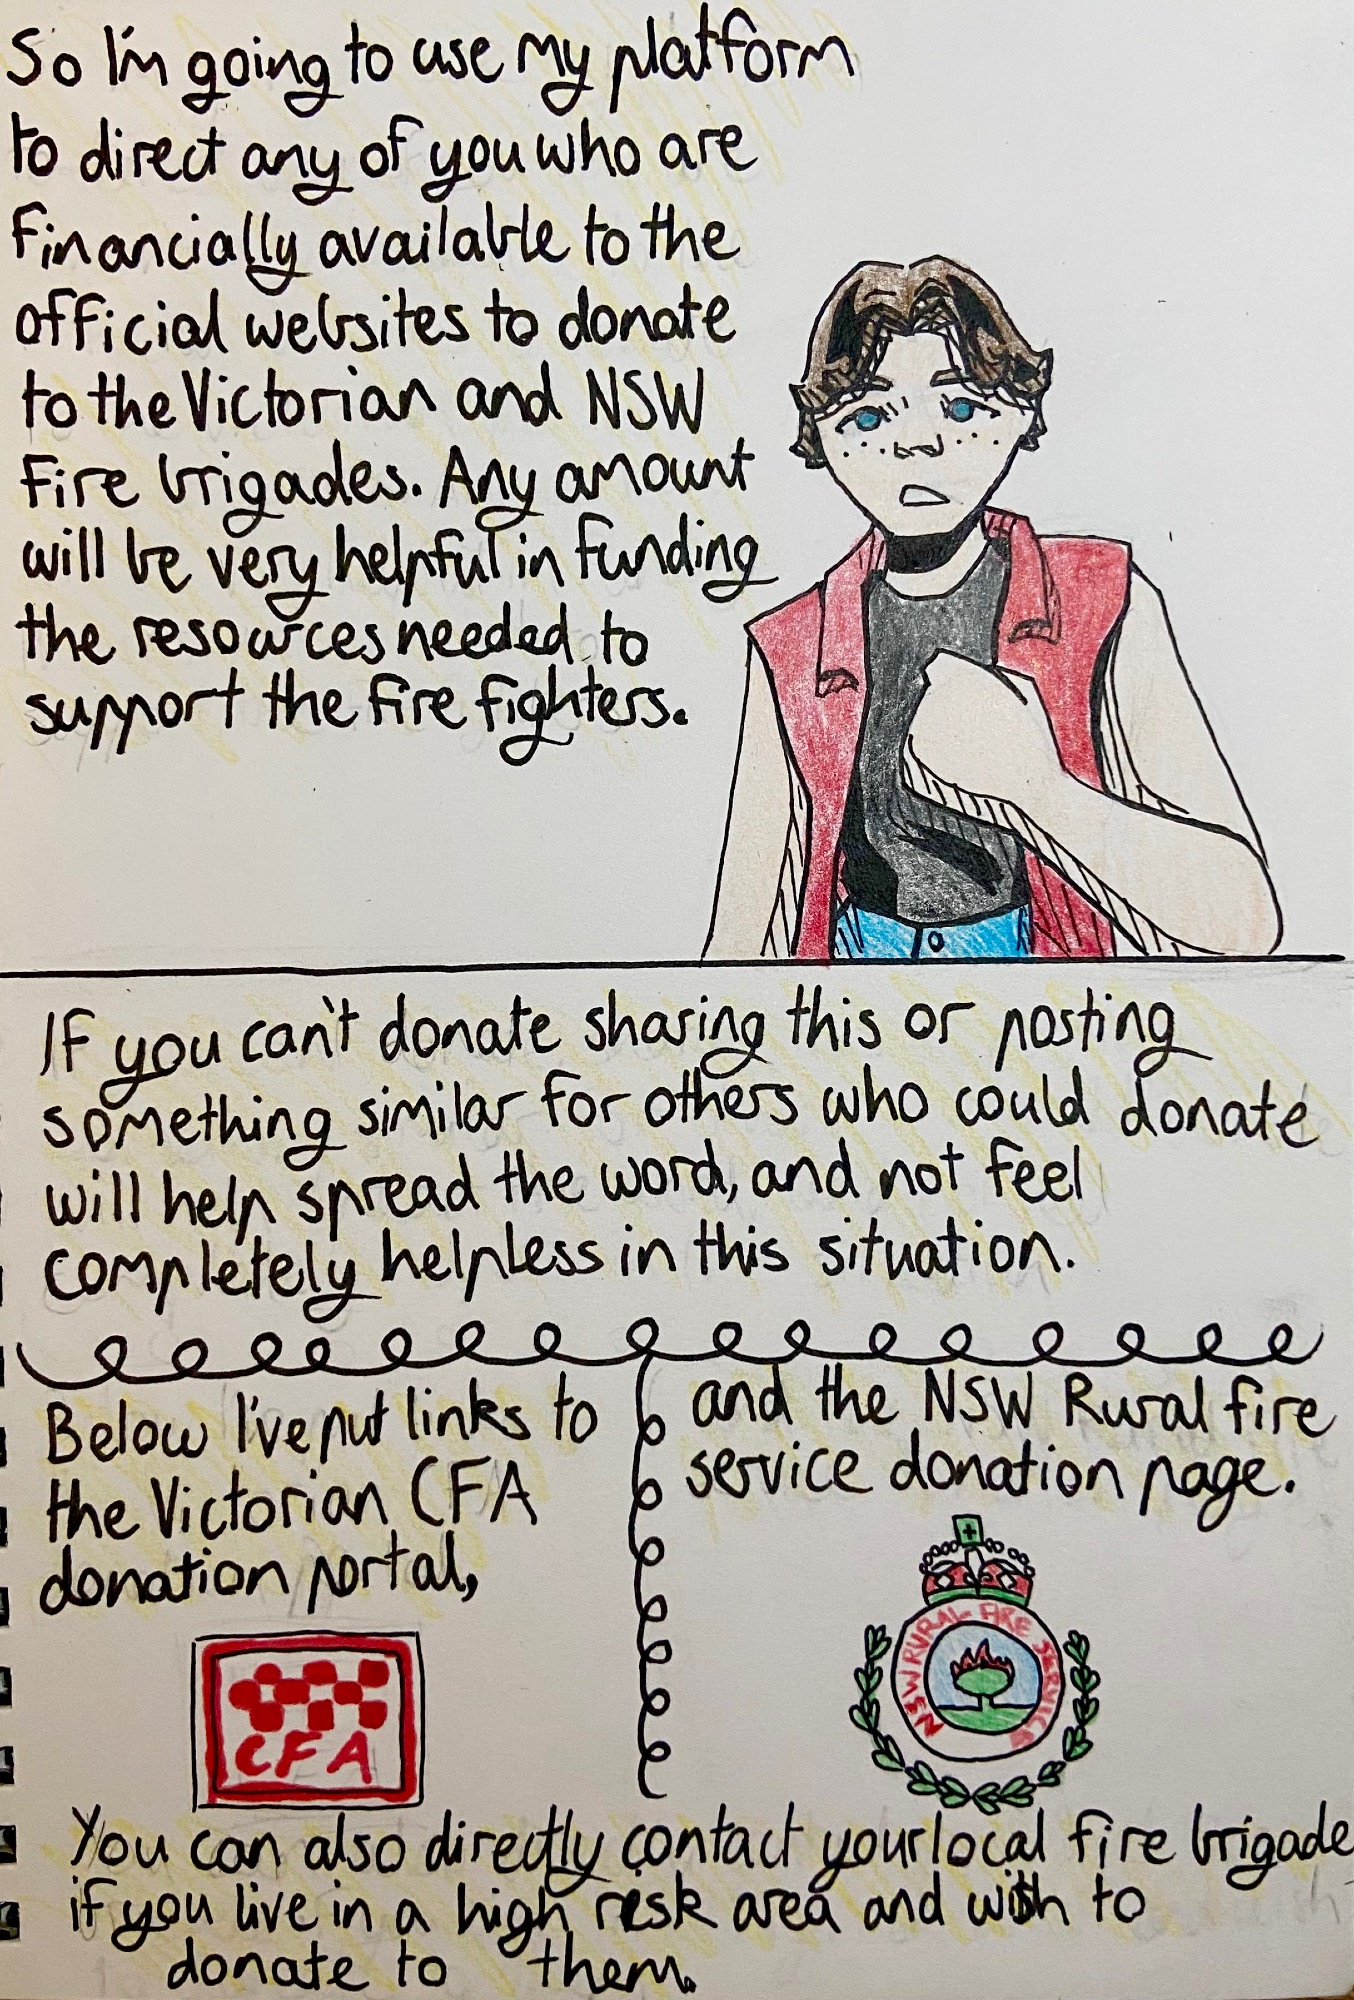 So I'm going to use my platform
to direct any of you who are
financially available to the
official websites to donate
to the Victorian and NSW
fire brigades. Any amount
will be very helpful in funding
the resources needed to
support the fire fighters.
If you can't donate sharing this or posting
something similar for others who could donate
will help spread the word, and not feel
completely helpless in this situation.
Below I've put links to
the Victorian CFA
donation portal,
CFA
and the NSW Rural fire
service donation page.
NSW RURAL FIRE SERVICE
You can also directly contact your local fire brigade
if you live in a high risk area and wish to
donate to them.